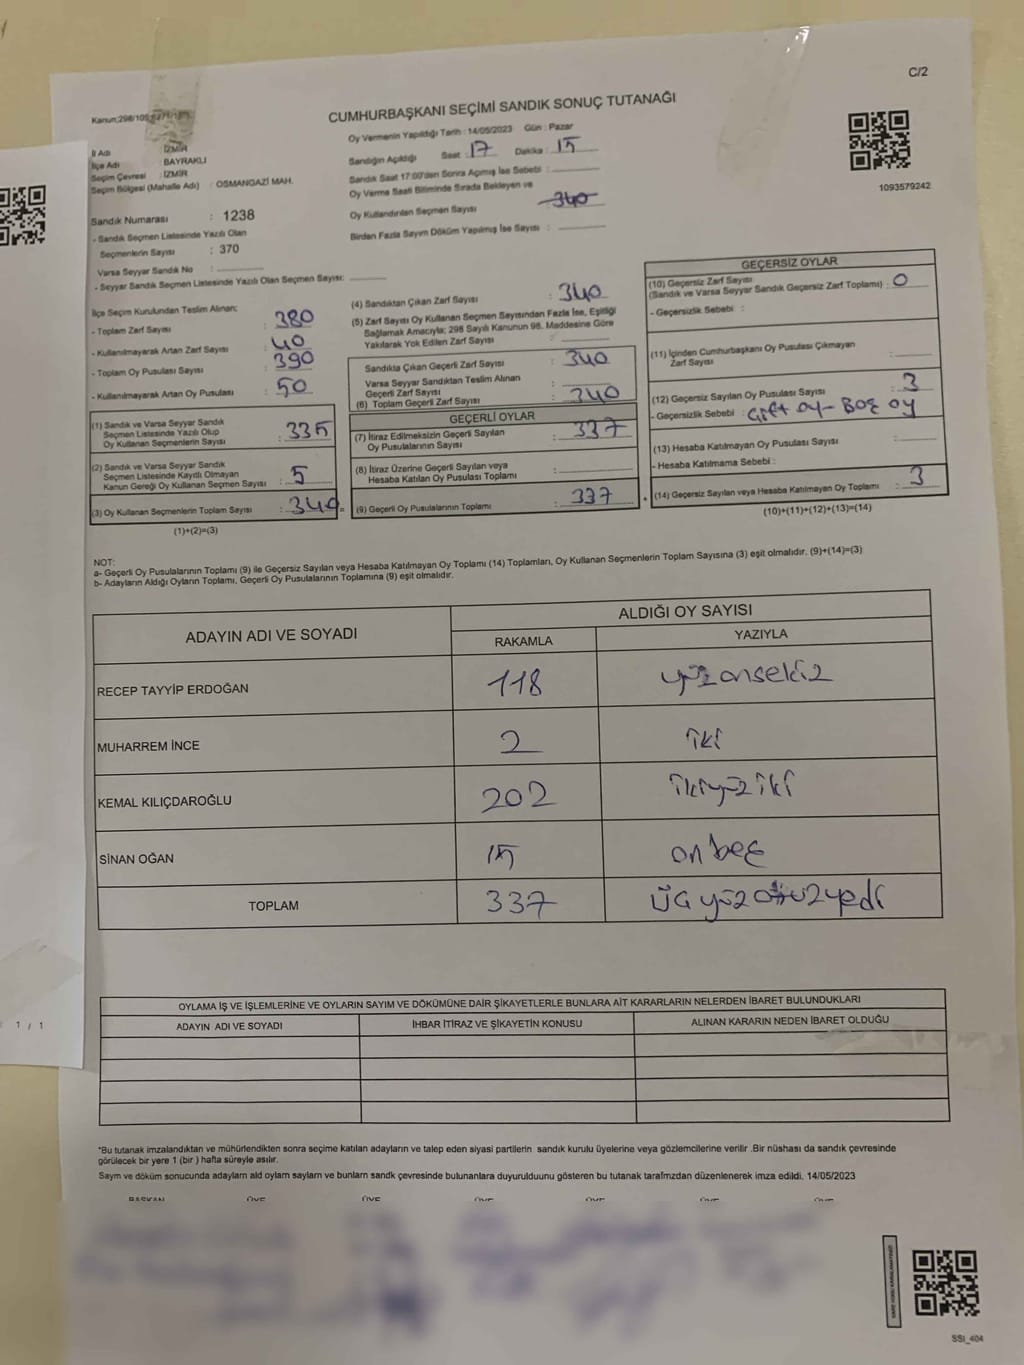 C/2
CUMHURBAŞKANI SEÇİMİ SANDIK SONUÇ TUTANAĞI
İl Adı : İZMİR
İlçe Adı : BAYRAKLI
Seçim Çevresi : İZMİR
Seçim Bölgesi (Mahalle Adı) : OSMANGAZİ MAH.
Sandık Numarası : 1238
- Sandık Seçmen Listesinde Yazılı Olan
Seçmenlerin Sayısı : 370
Varsa Seyyar Sandık No :
- Seyyar Sandık Seçmen Listesinde Yazılı Olan Seçmen Sayısı:
Oy Vermenin Yapıldığı Tarih : 14/05/2023 Gün : Pazar
Sandığın Açıldığı Saat : 17 Dakika : 15
Sandık Saat 17:00'den Sonra Açılmış İse Sebebi :
Oy Verme Saati Bitiminde Sırada Bekleyen ve
Oy Kullandırılan Seçmen Sayısı : 340
Birden Fazla Sayım Döküm Yapılmış İse Sayısı :
1093579242
İlçe Seçim Kurulundan Teslim Alınan:
- Toplam Zarf Sayısı : 380
- Kullanılmayarak Artan Zarf Sayısı : 40
- Toplam Oy Pusulası Sayısı : 390
- Kullanılmayarak Artan Oy Pusulası : 50
(1) Sandık ve Varsa Seyyar Sandık
Seçmen Listesinde Yazılı Olup
Oy Kullanan Seçmenlerin Sayısı : 335
(2) Sandık ve Varsa Seyyar Sandık
Seçmen Listesinde Kayıtlı Olmayan
Kanun Gereği Oy Kullanan Seçmen Sayısı : 5
(3) Oy Kullanan Seçmenlerin Toplam Sayısı : 340
(1)+(2)=(3)
(4) Sandıktan Çıkan Zarf Sayısı : 340
(5) Zarf Sayısı Oy Kullanan Seçmen Sayısından Fazla İse, Eşitliği
Sağlamak Amacıyla; 298 Sayılı Kanunun 98. Maddesine Göre
Yakılarak Yok Edilen Zarf Sayısı :
Sandıkta Çıkan Geçerli Zarf Sayısı : 340
Varsa Seyyar Sandıktan Teslim Alınan
Geçerli Zarf Sayısı :
(6) Toplam Geçerli Zarf Sayısı : 340
GEÇERLİ OYLAR
(7) İtiraz Edilmeksizin Geçerli Sayılan
Oy Pusulalarının Sayısı : 337
(8) İtiraz Üzerine Geçerli Sayılan veya
Hesaba Katılan Oy Pusulası Toplamı :
(9) Geçerli Oy Pusulalarının Toplamı : 337
GEÇERSİZ OYLAR
(10) Geçersiz Zarf Sayısı
(Sandık ve Varsa Seyyar Sandık Geçersiz Zarf Toplamı) : 0
- Geçersizlik Sebebi :
(11) İçinden Cumhurbaşkanı Oy Pusulası Çıkmayan
Zarf Sayısı :
(12) Geçersiz Sayılan Oy Pusulası Sayısı : 3
- Geçersizlik Sebebi : Çift oy - Boş oy
(13) Hesaba Katılmayan Oy Pusulası Sayısı :
- Hesaba Katılmama Sebebi :
(14) Geçersiz Sayılan veya Hesaba Katılmayan Oy Toplamı : 3
(10)+(11)+(12)+(13)=(14)
NOT:
a- Geçerli Oy Pusulalarının Toplamı (9) ile Geçersiz Sayılan veya Hesaba Katılmayan Oy Toplamı (14) Toplamları, Oy Kullanan Seçmenlerin Toplam Sayısına (3) eşit olmalıdır. (9)+(14)=(3)
b- Adayların Aldığı Oyların Toplamı, Geçerli Oy Pusulalarının Toplamına (9) eşit olmalıdır.
ADAYIN ADI VE SOYADI
ALDIĞI OY SAYISI
RAKAMLA YAZIYLA
RECEP TAYYİP ERDOĞAN 118 yüzonsekiz
MUHARREM İNCE 2 iki
KEMAL KILIÇDAROĞLU 202 ikiyüziki
SİNAN OĞAN 15 onbeş
TOPLAM 337 üçyüzotuzyedi
OYLAMA İŞ VE İŞLEMLERİNE VE OYLARIN SAYIM VE DÖKÜMÜNE DAİR ŞİKAYETLERLE BUNLARA AİT KARARLARIN NELERDEN İBARET BULUNDUKLARI
ADAYIN ADI VE SOYADI İHBAR İTİRAZ VE ŞİKAYETİN KONUSU ALINAN KARARIN NEDEN İBARET OLDUĞU
1 / 1
*Bu tutanak imzalandıktan ve mühürlendikten sonra seçime katılan adayların ve talep eden siyasi partilerin sandık kurulu üyelerine veya gözlemcilerine verilir .Bir nüshası da sandık çevresinde
görülecek bir yere 1 (bir ) hafta süreyle asılır.
Sayım ve döküm sonucunda adayların aldı oyların sayların ve bunların sandk çevresinde bulunanlara duyurulduunu gösteren bu tutanak tarafmzdan düzenlenerek imza edildi. 14/05/2023
BAŞKAN ÜYE ÜYE ÜYE ÜYE ÜYE ÜYE
SSI_404